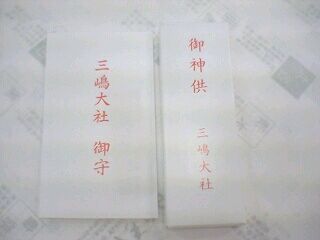 三嶋大社 御守
御神供
三嶋大社